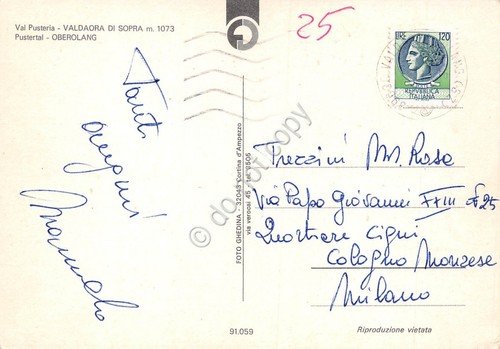 Val Pusteria - VALDAORA DI SOPRA m. 1073
Pustertal - OBEROLANG
25
LIRE 120
REPVBBLICA
ITALIANA
Tanti
auguri
FOTO GHEDINA - 32043 Cortina d'Ampezzo
via verocai 45 - tel 2505
Trezzini M. Rosa
Via Papo Giovanni XXIII
25
Quartiere Cigni
Cologno Monzese
Milano
91.059
Riproduzione vietata